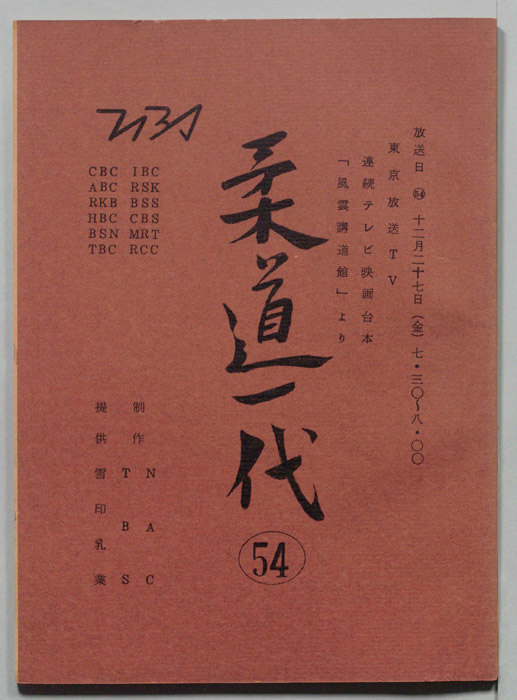 放送日 ㊾ 十二月二十七日（金）七・三〇～八・〇〇
東京放送TV
連続テレビ映画台本
「風雲講道館」より
柔道一代
54
CBC IBC
ABC RSK
RKB BSS
HBC CBS
BSN MRT
TBC RCC
制作 NAC
TBS
提供 雪印乳業